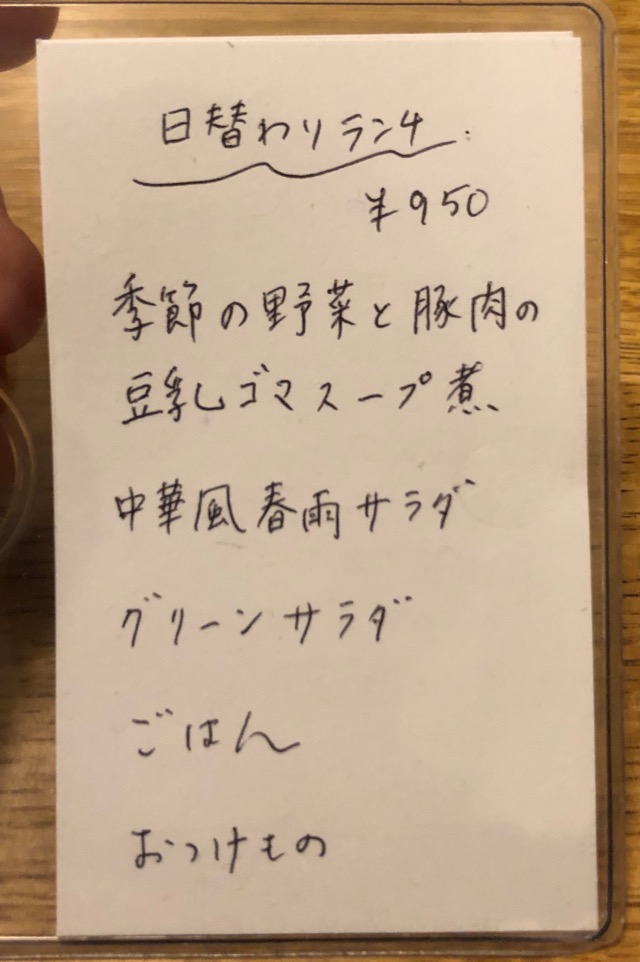 日替わりランチ
¥950
季節の野菜と豚肉の
豆乳しゴマスープ煮
中華風春雨サラダ
グリーンサラダ
ごはん
おつけもの